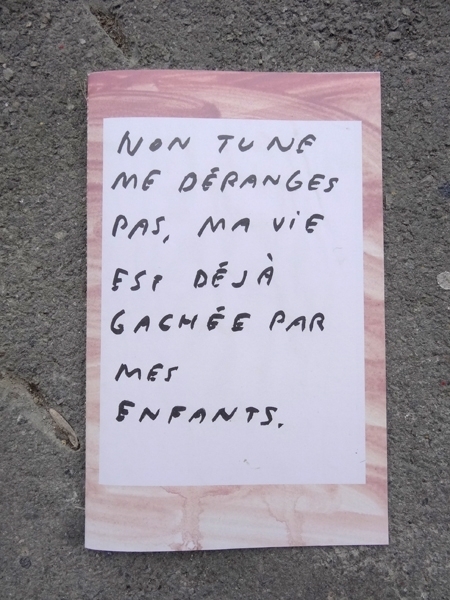 NON TU NE
ME DÉRANGES
PAS, MA ViE
EST DÉJÀ
GACHÉE PAR
MES
ENFANTS.